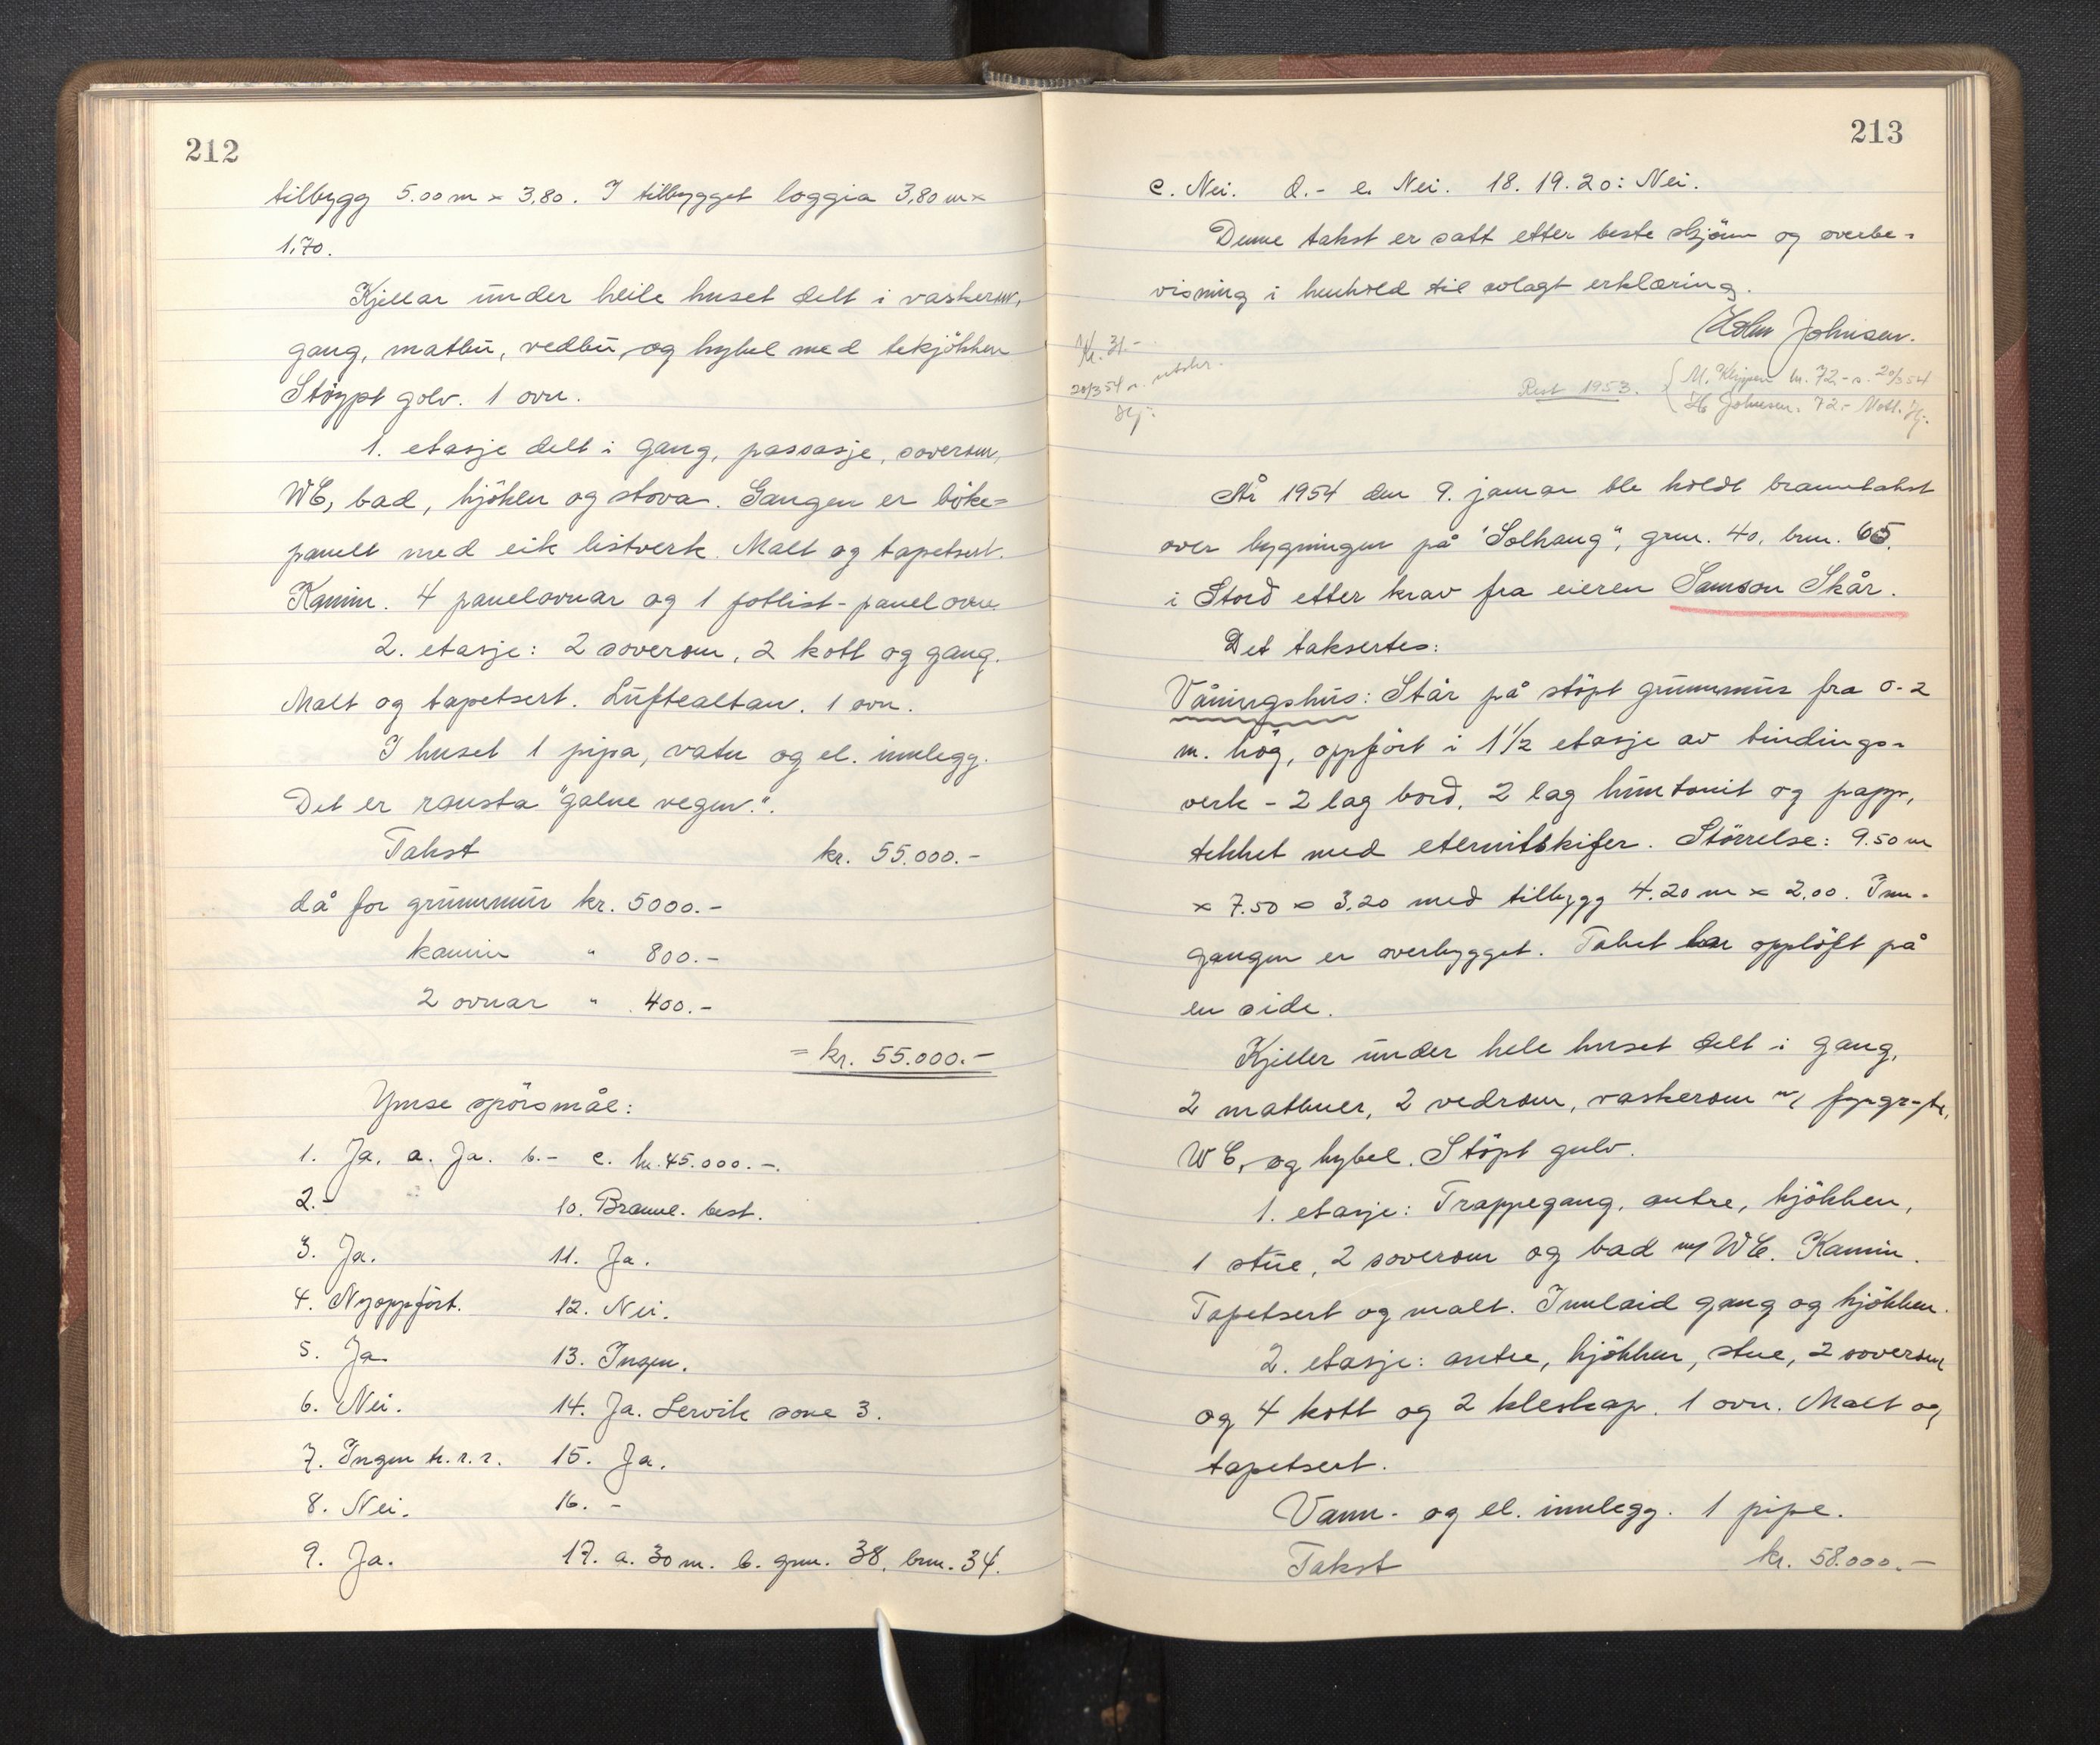 212
tilbygg 5.00 m x 3,80. I tilbygget loggia 3,80 m x
1,70.
Kjellar under heile huset delt i vaskerom,
gang, matbu, vedbu, og hybel med tekjökken
Stöypt golv. 1 ovn.
1. etasje delt i gang, passasje, soverom,
WC, bad, kjökken og stova. Gangen er böke=
panelt med eik listverk. Malt og tapetsert.
Kamin. 4 panelovnar og 1 fotlist-panelovn
2. etasje: 2 soverom, 2 kott og gang.
Malt og tapetsert. Luftealtan. 1 ovn.
I huset 1 pipa, vatn og el. innlegg.
Det er rausta "galne vegen".
Takst kr. 55.000.-
då for grunnmur kr. 5000.-
kamin " 800.-
2 ovnar " 400.-
= kr. 55.000.-
Ymse spörsmål:
1. Ja. a. Ja. b.- c. kr. 45.000.-.
2.- 10. Brannl. best.
3. Ja. 11. Ja.
4. Nyoppfört. 12. Nei.
5. Ja. 13. Ingen.
6. Nei. 14. Ja. Lervik sone 3.
7. Ingen k.r.r. 15. Ja.
8. Nei. 16. -
9. Ja. 17. a. 30 m. b. gnr. 38, bnr. 34.
213
c. Nei. d.- e. Nei. 18. 19. 20: Nei.
Denne takst er satt etter beste skjönn og overbe-
visning i henhold til avlagt erklæring.
Johnsen.
Kr. 31.-
20/3 54 n. utskr.
Hj.
Rest 1953. { M. Klippen kr. 72.- 20/3 54
H. Johnsen. 72.- Mott. Hj.
År 1954 den 9. januar ble holdt branntakst
over bygningen på "Solhaug", gnr. 40, bnr. 65.
i Stord etter krav fra eieren Samson Skår.
Det taksertes:
Våningshus: Står på stöpt grunnmur fra 0-2
m. hög, oppfört i 1 1/2 etasje av bindings-
verk - 2 lag bord, 2 lag huntonit og papp,
tekket med eternitskifer. Störrelse: 9.50 m
x 7.50 x 3.20 med tilbygg 4.20 m x 2,00. Inn-
gangen er overbygget. Taket har opplöft på
en side.
Kjeller under hele huset delt i gang,
2 matbuer, 2 vedrom, vaskerom m/ fyrgryte,
WC, og hybel. Stöpt gulv.
1. etasje: Trappegang, entre, kjökken,
1 stue, 2 soverom og bad m/ WC. Kamin.
Tapetsert og malt. Innlaid gang og kjökken.
2. etasje: entre, kjökken, stue, 2 soverom
og 4 kott og 2 kleskap. 1 ovn. Malt og
tapetsert.
Vann- og el. innlegg. 1 pipe.
Takst kr. 58.000.-